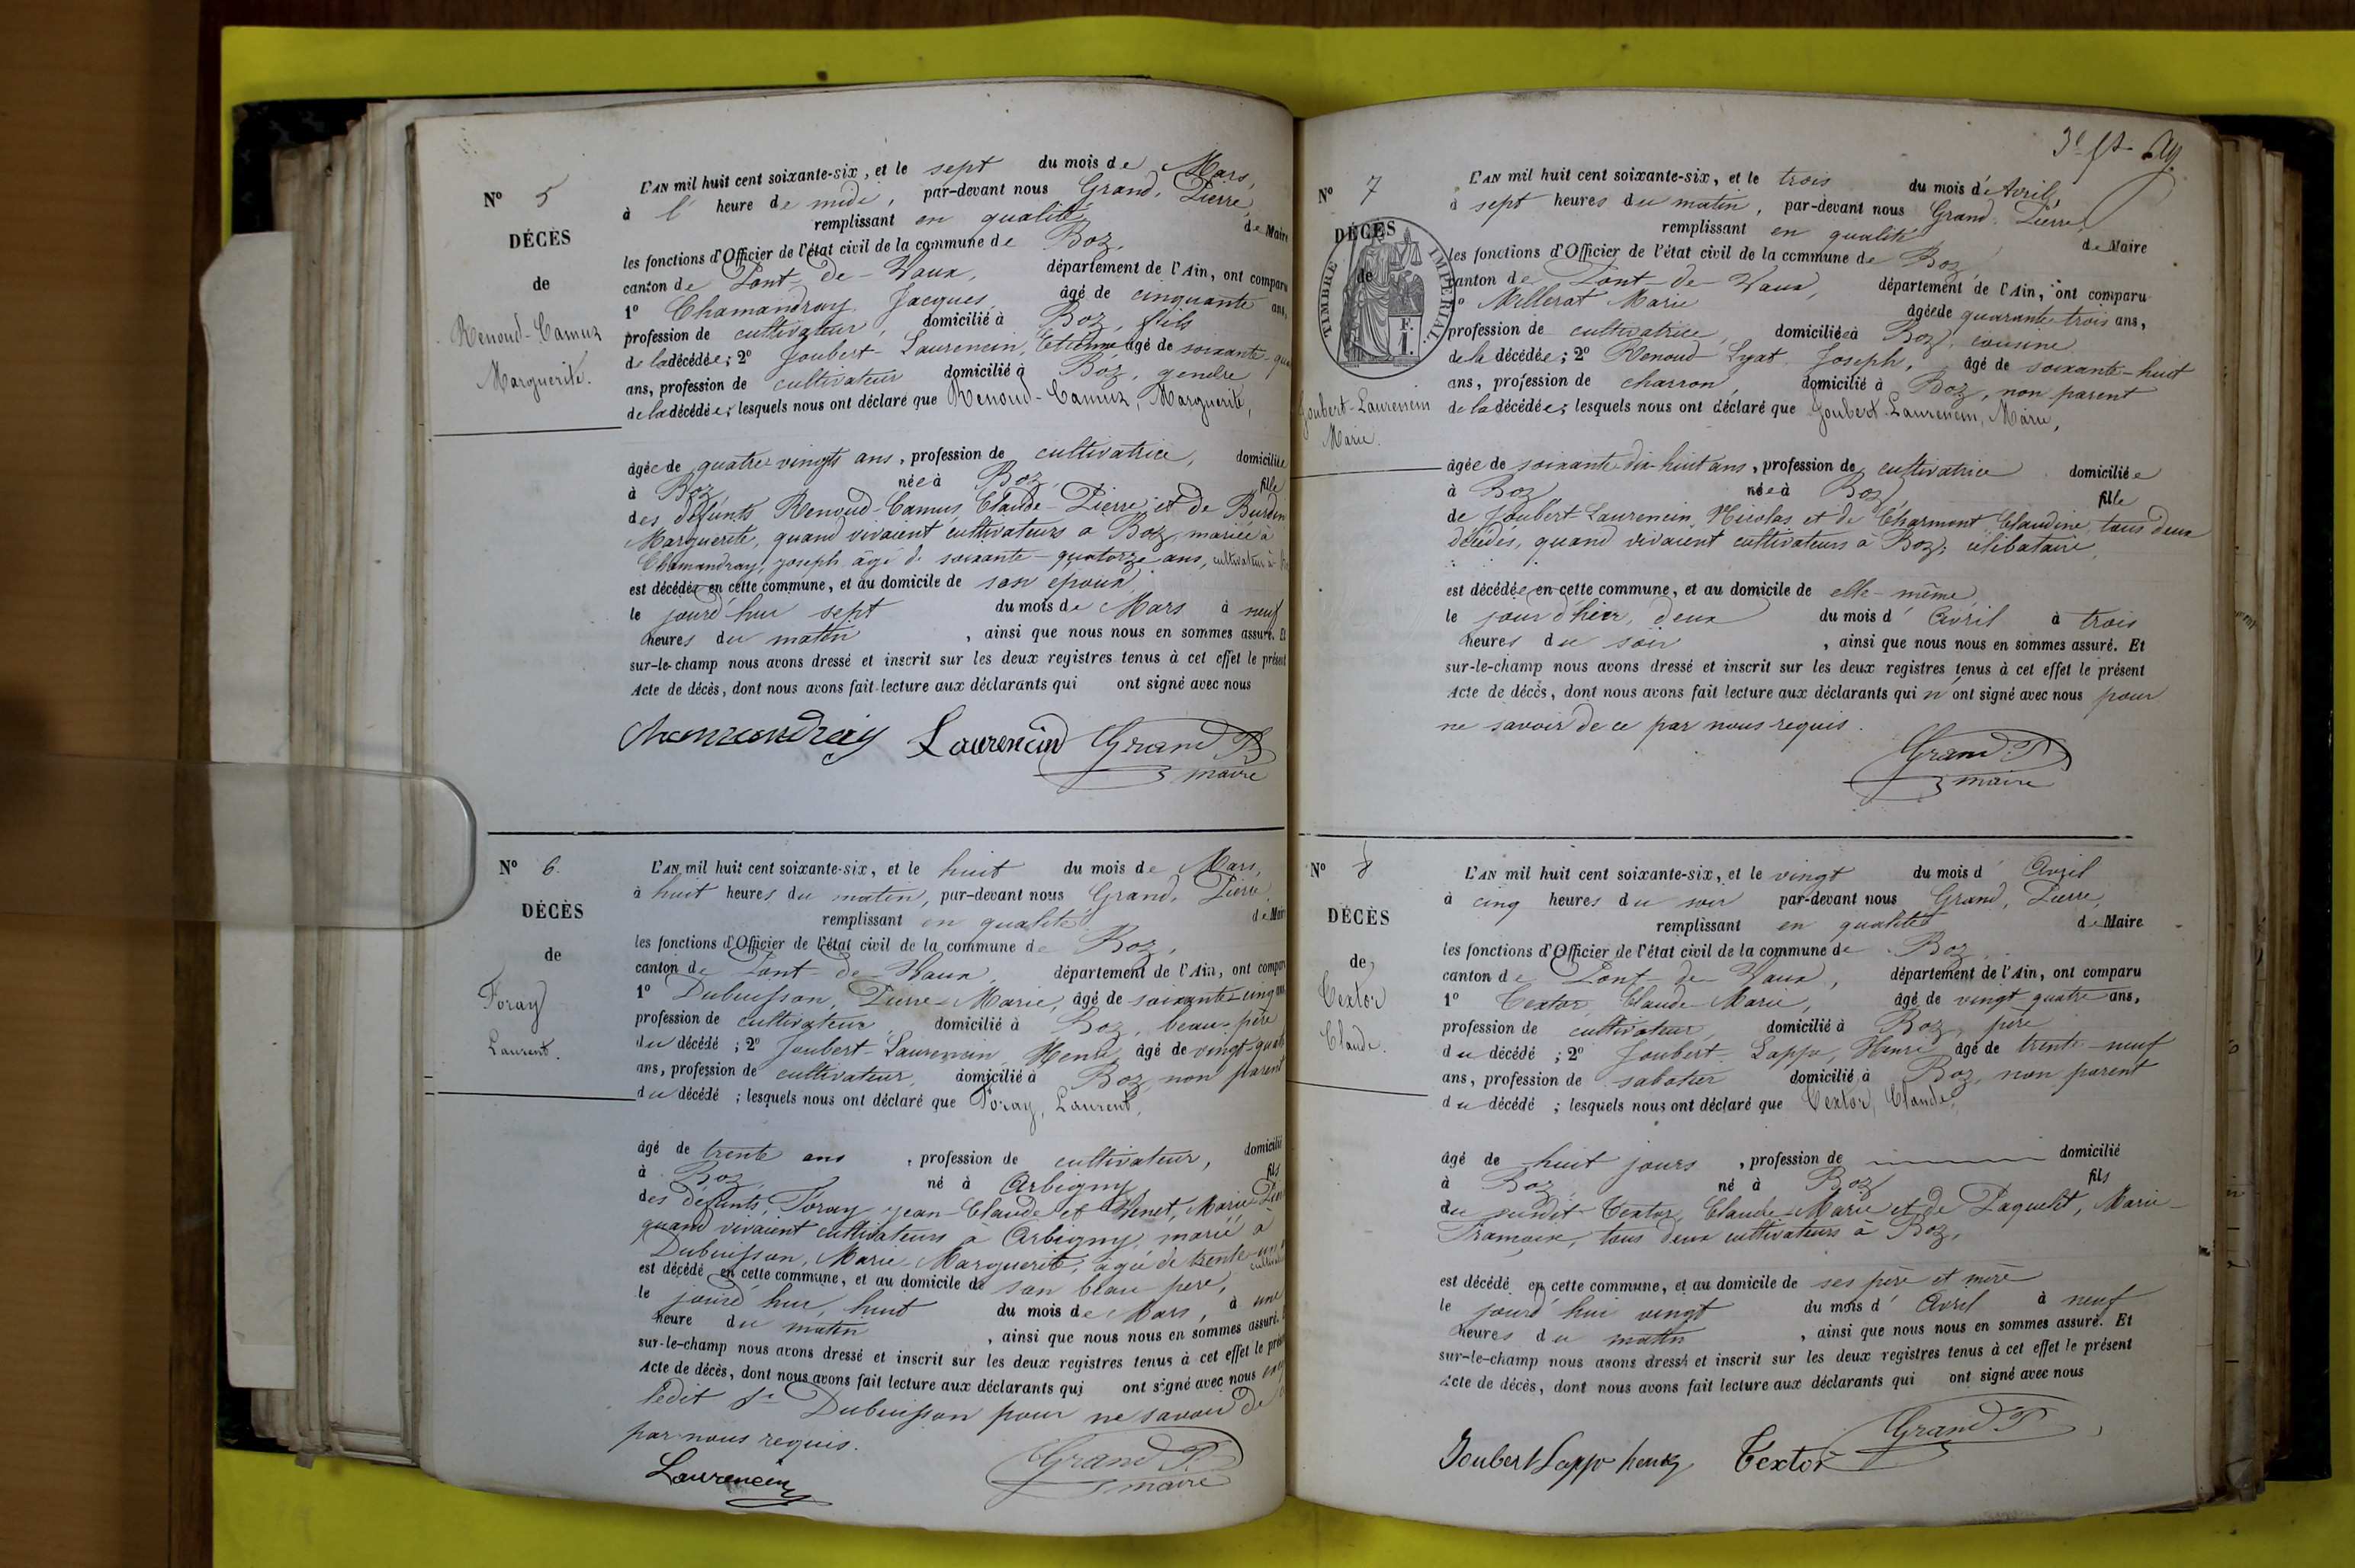 Nº 5
DÉCÈS
de
Renoud-Camuz
Marguerite.
L'AN mil huit cent soixante-six, et le sept du mois de Mars,
à l' heure de midi, par-devant nous Grand, Pierre,
remplissant en qualité de Maire
les fonctions d'Officier de l'état civil de la commune de Boz,
canton de Pont-de-Vaux, département de l'Ain, ont comparu
1º Chamandray Jacques, âgé de cinquante ans,
profession de cultivateur, domicilié à Boz, fils
de la décédée; 2º Joubert-Laurencin, Etienne âgé de soixante-
ans, profession de cultivateur domicilié à Boz, gendre
de la décédée; lesquels nous ont déclaré que Renoud-Camuz, Marguerite,
âgée de quatre-vingts ans, profession de cultivatrice, domiciliée
à Boz née à Boz, fille
des défunts Renoud-Camus, Claude-Pierre et de Burdin
Marguerite, quand vivaient cultivateurs à Boz, mariée à
Chamandray, Joseph âgé de soixante-quatorze ans, cultivateur à
est décédée en cette commune, et au domicile de son époux
le jourd'hui sept du mois de Mars à neuf
heures du matin, ainsi que nous nous en sommes assuré. Et
sur-le-champ nous avons dressé et inscrit sur les deux registres tenus à cet effet le présent
Acte de décès, dont nous avons fait lecture aux déclarants qui ont signé avec nous
Chamandray Laurencin Grand P.
maire
Nº 6.
DÉCÈS
de
Foray
Laurent.
L'AN mil huit cent soixante-six, et le huit du mois de Mars,
à huit heures du matin, par-devant nous Grand, Pierre,
remplissant en qualité de Maire
les fonctions d'Officier de l'état civil de la commune de Boz,
canton de Pont-de-Vaux, département de l'Ain, ont comparu
1º Dubuisson, Pierre-Marie, âgé de soixante-cinq ans
profession de cultivateur, domicilié à Boz, beau-père
du décédé; 2º Joubert-Laurencin Henri âgé de vingt-quatre
ans, profession de cultivateur, domicilié à Boz non parent
du décédé; lesquels nous ont déclaré que Foray, Laurent,
âgé de trente ans, profession de cultivateur, domicilié
à Boz, né à Arbigny fils
des défunts, Foray Jean-Claude et Venet, Marie-
quand vivaient cultivateurs à Arbigny marié à
Dubuisson, Marie-Marguerite, âgée de trente-
est décédé en cette commune, et au domicile de son beau père,
le jourd'hui, huit du mois de Mars, à une
heure du matin, ainsi que nous nous en sommes assuré.
sur-le-champ nous avons dressé et inscrit sur les deux registres tenus à cet effet le présent
Acte de décès, dont nous avons fait lecture aux déclarants qui ont signé avec nous
ledit Sr Dubuisson pour ne savoir de
par nous requis.
Laurencin Grand P.
maire
3e ft
Nº 7
DÉCÈS
de
TIMBRE IMPÉRIAL
Joubert-Laurencin
Marie.
L'AN mil huit cent soixante-six, et le trois du mois d'Avril,
à sept heures du matin, par-devant nous Grand Pierre,
remplissant en qualité de Maire
les fonctions d'Officier de l'état civil de la commune de Boz
canton de Pont-de-Vaux, département de l'Ain, ont comparu
1º Millerat Marie âgée de quarante-trois ans,
profession de cultivatrice, domiciliée à Boz, cousine
de la décédée; 2º Renoud-Lyat Joseph, âgé de soixante-huit
ans, profession de charron, domicilié à Boz, non parent
de la décédée; lesquels nous ont déclaré que Joubert-Laurencin, Marie,
âgée de soixante-dix-huit ans, profession de cultivatrice domiciliée
à Boz, née à Boz, fille
de Joubert-Laurencin, Nicolas et de Charmont Claudine tous deux
décédés, quand vivaient cultivateurs à Boz, célibataire,
est décédée en cette commune, et au domicile de elle-même
le jour d'hier, deux du mois d'Avril à trois
heures du soir, ainsi que nous nous en sommes assuré. Et
sur-le-champ nous avons dressé et inscrit sur les deux registres tenus à cet effet le présent
Acte de décès, dont nous avons fait lecture aux déclarants qui n'ont signé avec nous pour
ne savoir de ce par nous requis.
Grand. P.
maire
Nº 8
DÉCÈS
de
Textor
Claude.
L'AN mil huit cent soixante-six, et le vingt du mois d'Avril
à cinq heures du soir par-devant nous Grand, Pierre,
remplissant en qualité de Maire
les fonctions d'Officier de l'état civil de la commune de Boz,
canton de Pont-de-Vaux, département de l'Ain, ont comparu
1º Textor, Claude-Marie, âgé de vingt quatre ans,
profession de cultivateur, domicilié à Boz, père
du décédé; 2º Joubert-Sappo, Henri âgé de trente-neuf
ans, profession de sabotier domicilié à Boz, non parent
du décédé; lesquels nous ont déclaré que Textor, Claude,
âgé de huit jours, profession de — domicilié
à Boz, né à Boz fils
du susdit Textor, Claude-Marie et de Paquelet, Marie-
Françoise, tous deux cultivateurs à Boz,
est décédé en cette commune, et au domicile de ses père et mère
le jourd'hui vingt du mois d'Avril à neuf
heures du matin, ainsi que nous nous en sommes assuré. Et
sur-le-champ nous avons dressé et inscrit sur les deux registres tenus à cet effet le présent
Acte de décès, dont nous avons fait lecture aux déclarants qui ont signé avec nous
Joubert Sappo henry Textor Grand P